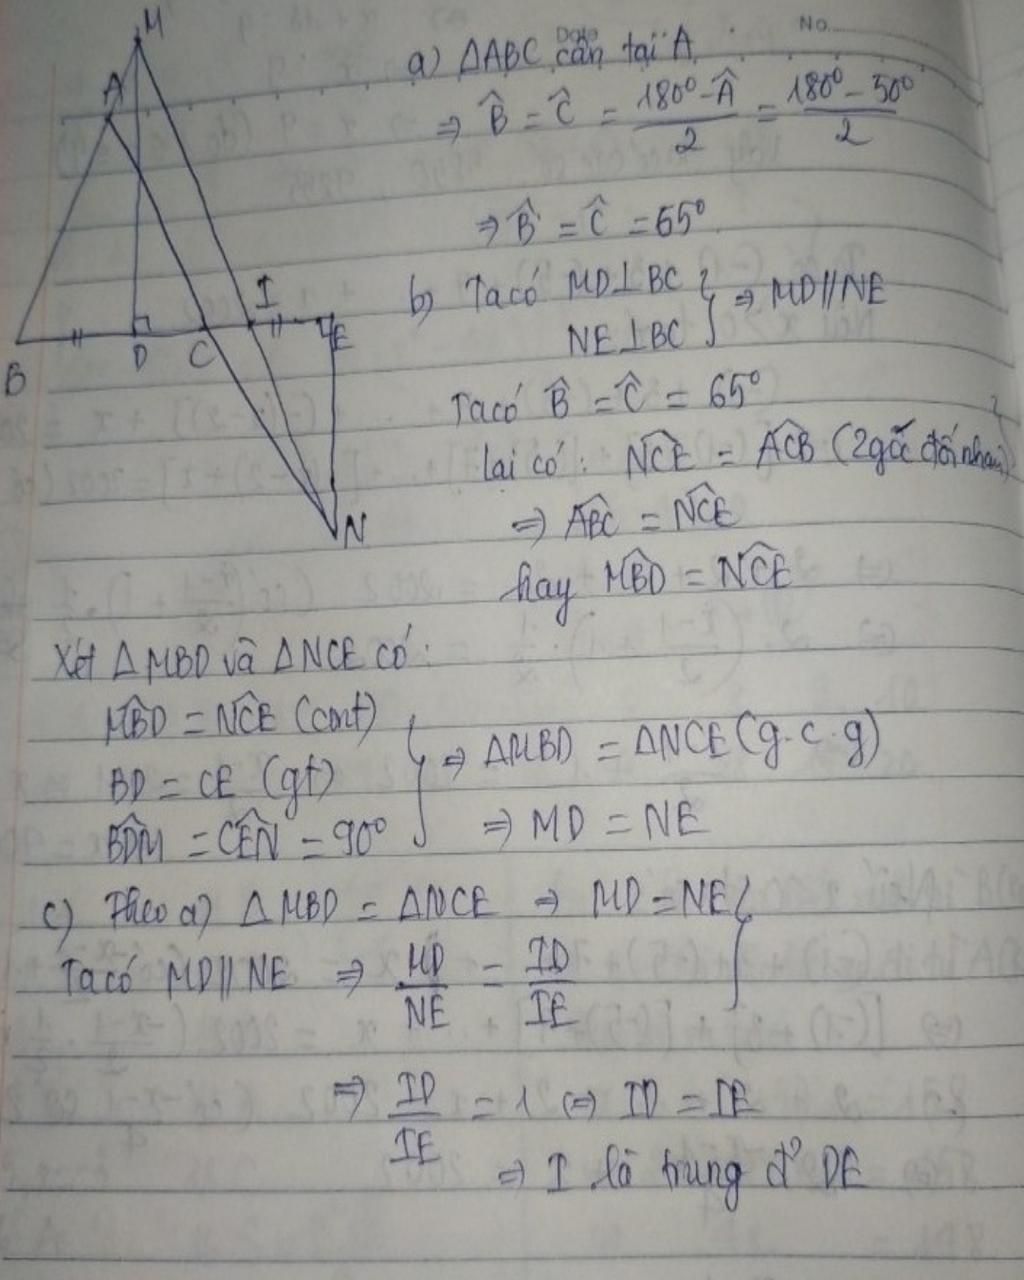 No.
Date
M
A
I
E
B
D
C
N
a) ΔABC cân tại A
⇒ B̂ = Ĉ = (180° - Â)/2 = (180° - 50°)/2
⇒ B̂ = Ĉ = 65°
b) Ta có MD⊥BC } ⇒ MD // NE
NE⊥BC
Ta có B̂ = Ĉ = 65°
lại có: NCE^ = ACB^ (2 góc đối nhau)
⇒ ABC^ = NCE^
hay MBD^ = NCE^
Xét ΔMBD và ΔNCE có:
MBD^ = NCE^ (cmt)
BD = CE (gt) } ⇒ ΔMBD = ΔNCE (g.c.g)
BDM^ = CEN^ = 90° ⇒ MD = NE
c) Theo a) ΔMBD = ΔNCE ⇒ MD = NE }
Ta có MD // NE ⇒ MD/NE = ID/IE
⇒ ID/IE = 1 ⇔ ID = IE
⇒ I là trung đ² DE